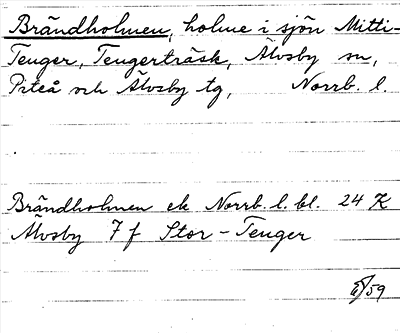 Brändholmen, holme i sjön Mitti-
Teuger, Teugerträsk, Älvsby sn,
Piteå och Älvsby tg, Norrb. l.
Brändholmen ek Norrb. l. bl. 24 K
Älvsby 7 f Stor-Teuger
/59